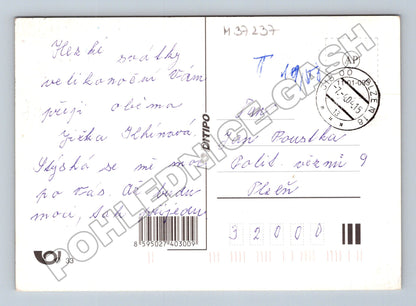 M 37237
Hezké svátky
velikonoční Vám
přeji oběma
Jiřka
Stýská se mi moc
po Vas. Až budu
mou, tak přijedu
DITIPO
(AP)
PLZEŇ 18
Pan Poustka
Polit. vězňů 9
Plzeň
3 2 0 0 0
33
8 595027 403009
POHLEDNICE-GASH